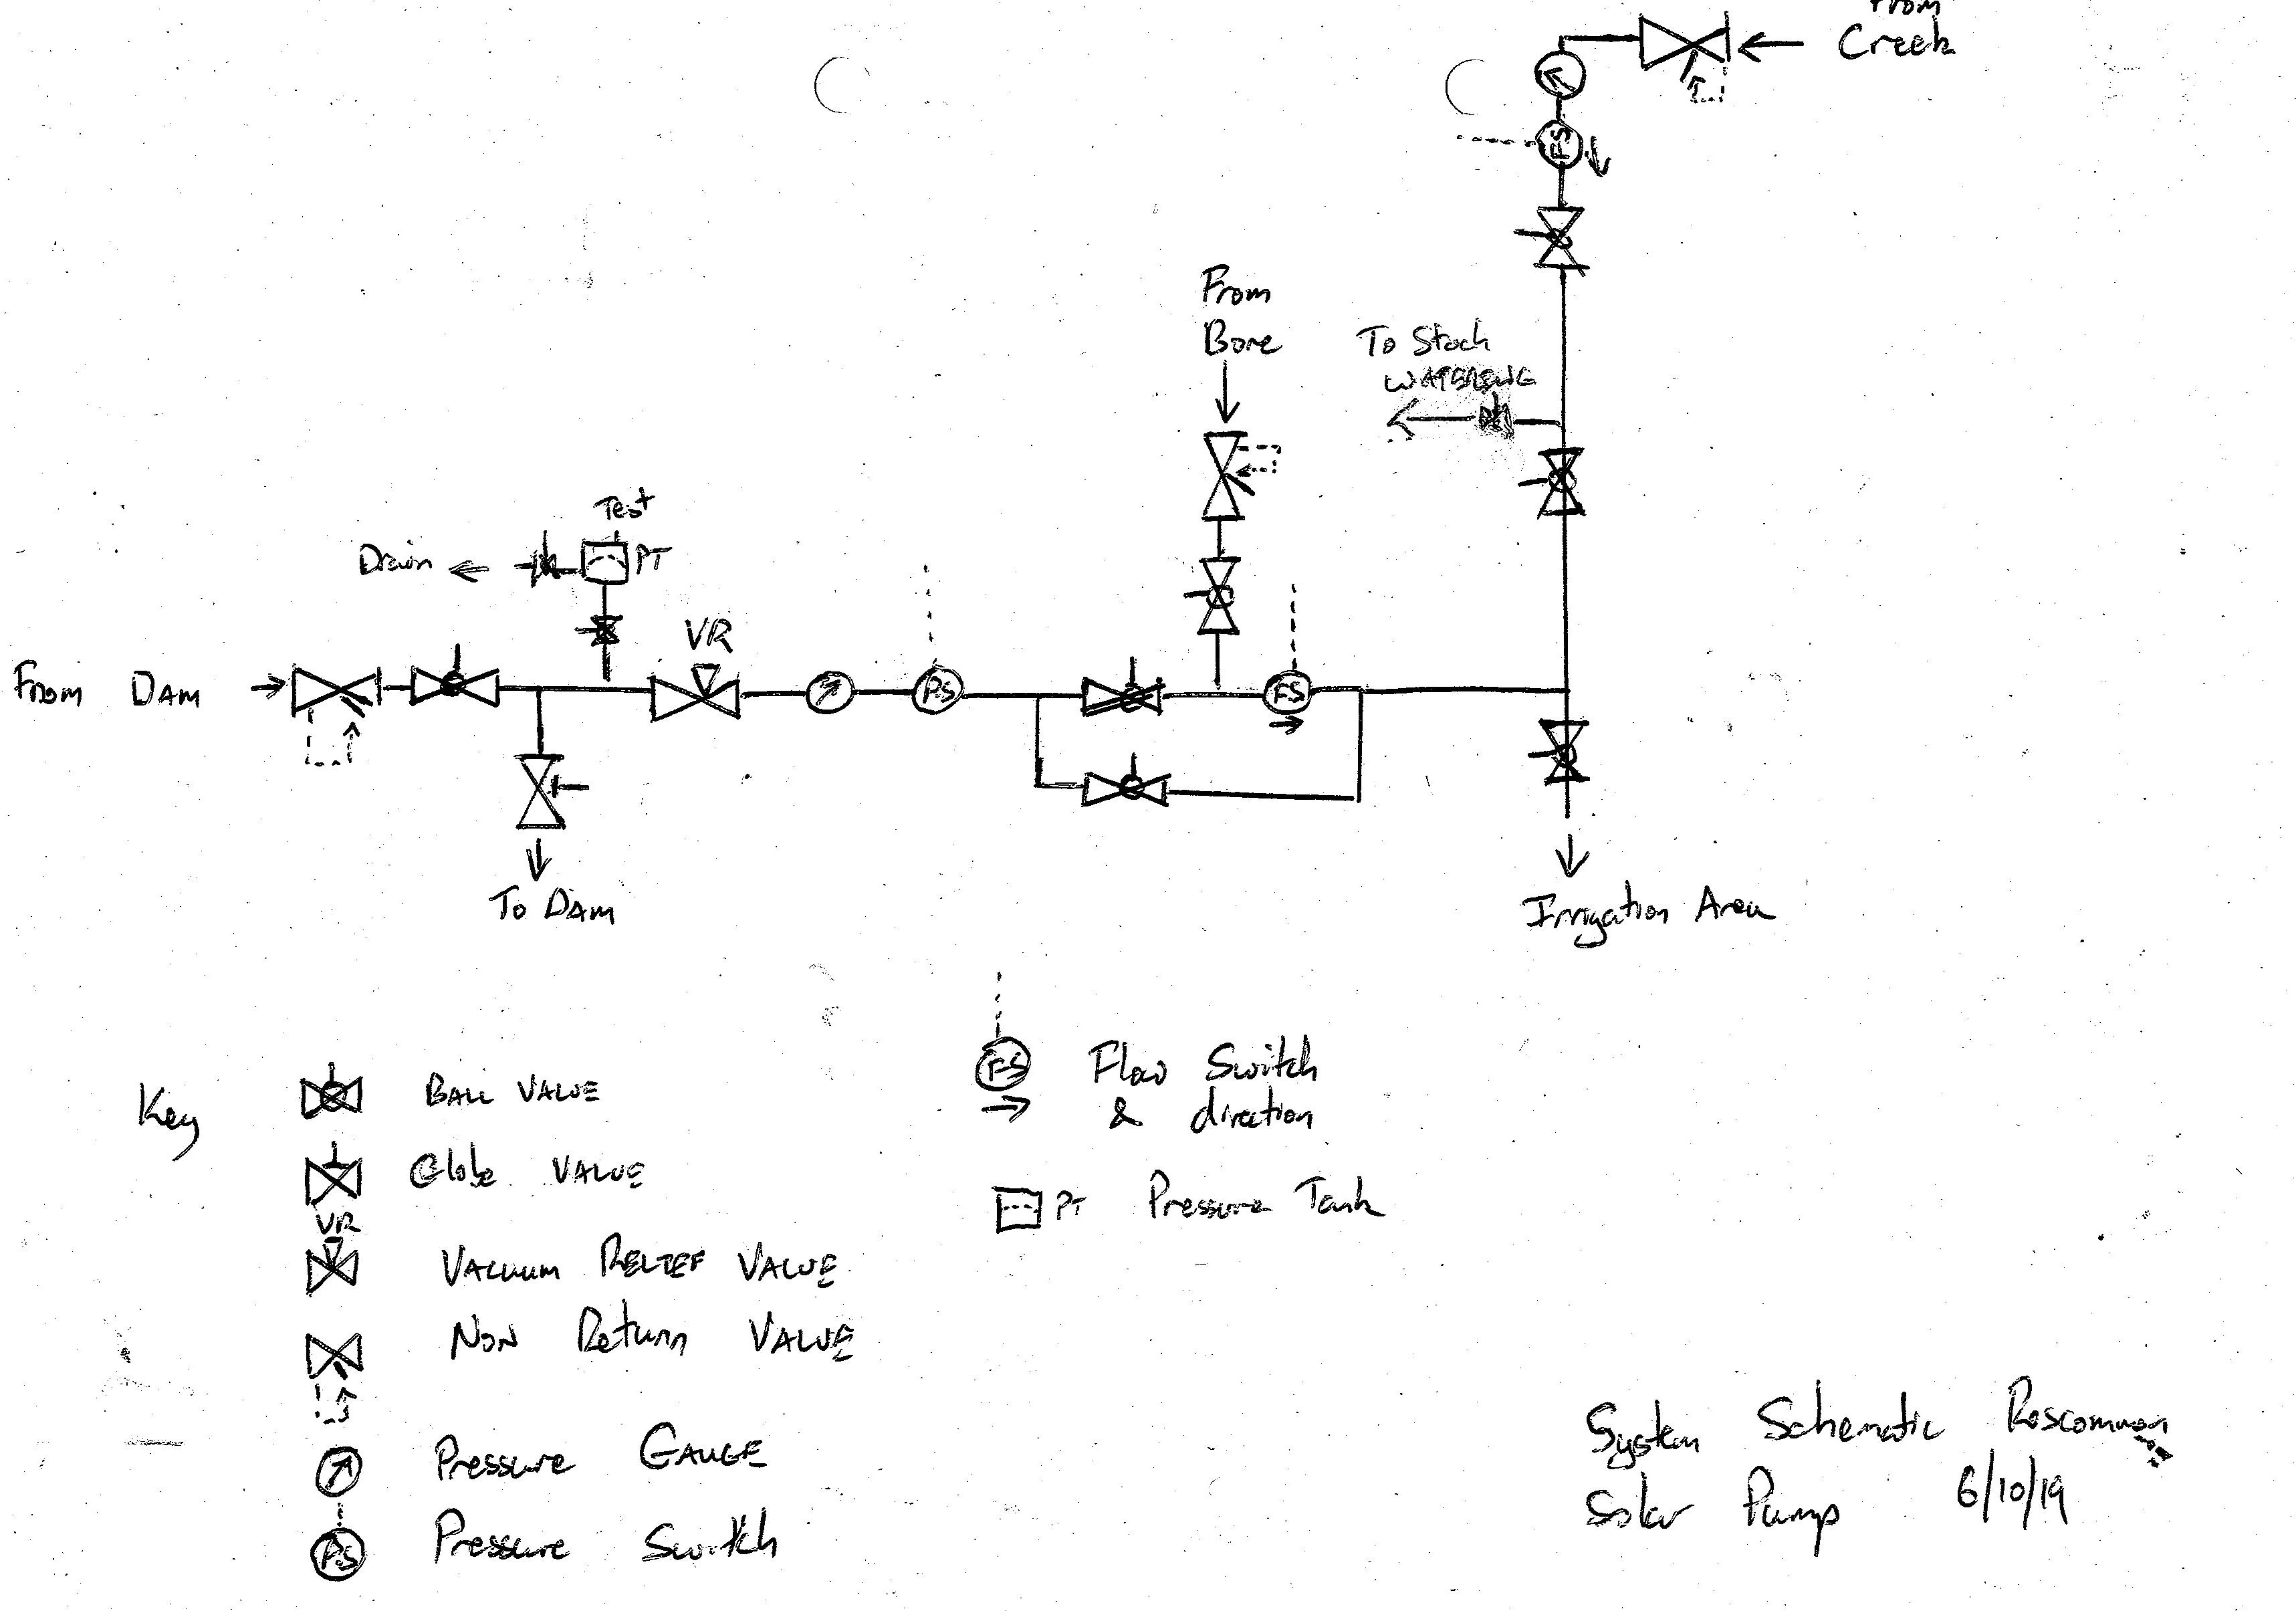 From
Creek
FS
From
Bore
To Stock
WATERING
Test
Drain
PT
VR
From DAM
PS
FS
To DAM
Irrigation Area
Key
BALL VALVE
Globe VALVE
VR
VACUUM RELIEF VALVE
NON Return VALVE
Pressure GAUGE
PS Pressure Switch
FS Flow Switch
& direction
PT Pressure Tank
System Schematic Roscommon
Solar Pump 6/10/19